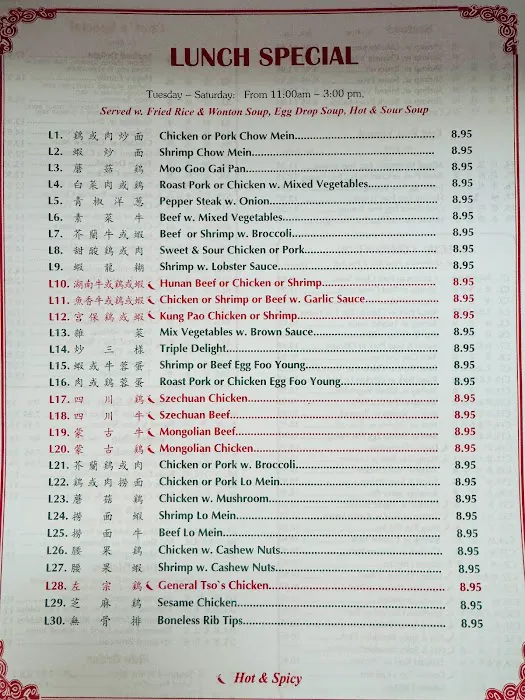 LUNCH SPECIAL
Tuesday – Saturday: From 11:00am – 3:00 pm.
Served w. Fried Rice & Wonton Soup, Egg Drop Soup, Hot & Sour Soup
L1. 鷄或肉炒面 Chicken or Pork Chow Mein 8.95
L2. 蝦炒面 Shrimp Chow Mein 8.95
L3. 蘑菇鷄 Moo Goo Gai Pan 8.95
L4. 白菜肉或鷄 Roast Pork or Chicken w. Mixed Vegetables 8.95
L5. 青椒洋葱 Pepper Steak w. Onion 8.95
L6. 素菜牛 Beef w. Mixed Vegetables 8.95
L7. 芥蘭牛或蝦 Beef or Shrimp w. Broccoli 8.95
L8. 甜酸鷄或肉 Sweet & Sour Chicken or Pork 8.95
L9. 蝦龍糊 Shrimp w. Lobster Sauce 8.95
L10. 湖南牛或鷄或蝦 Hunan Beef or Chicken or Shrimp 8.95
L11. 魚香牛或鷄或蝦 Chicken or Shrimp or Beef w. Garlic Sauce 8.95
L12. 宫保鷄或蝦 Kung Pao Chicken or Shrimp 8.95
L13. 雜菜 Mix Vegetables w. Brown Sauce 8.95
L14. 炒三樣 Triple Delight 8.95
L15. 蝦或牛蓉蛋 Shrimp or Beef Egg Foo Young 8.95
L16. 肉或鷄蓉蛋 Roast Pork or Chicken Egg Foo Young 8.95
L17. 四川鷄 Szechuan Chicken 8.95
L18. 四川牛 Szechuan Beef 8.95
L19. 蒙古牛 Mongolian Beef 8.95
L20. 蒙古鷄 Mongolian Chicken 8.95
L21. 芥蘭鷄或肉 Chicken or Pork w. Broccoli 8.95
L22. 鷄或肉撈面 Chicken or Pork Lo Mein 8.95
L23. 蘑菇鷄 Chicken w. Mushroom 8.95
L24. 撈面蝦 Shrimp Lo Mein 8.95
L25. 撈面牛 Beef Lo Mein 8.95
L26. 腰果鷄 Chicken w. Cashew Nuts 8.95
L27. 腰果蝦 Shrimp w. Cashew Nuts 8.95
L28. 左宗鷄 General Tso`s Chicken 8.95
L29. 芝麻鷄 Sesame Chicken 8.95
L30. 無骨排 Boneless Rib Tips 8.95
Hot & Spicy